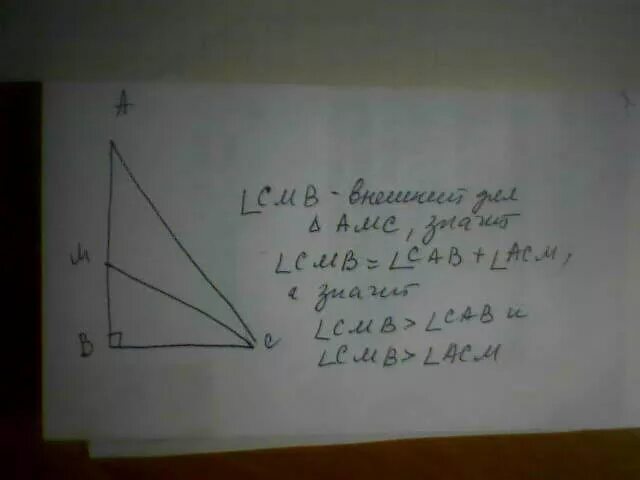 A
∠CMB - внешний для
△ AMC, значит
M
∠CMB = ∠CAB + ∠ACM,
а значит
∠CMB > ∠CAB и
B
C
∠CMB > ∠ACM